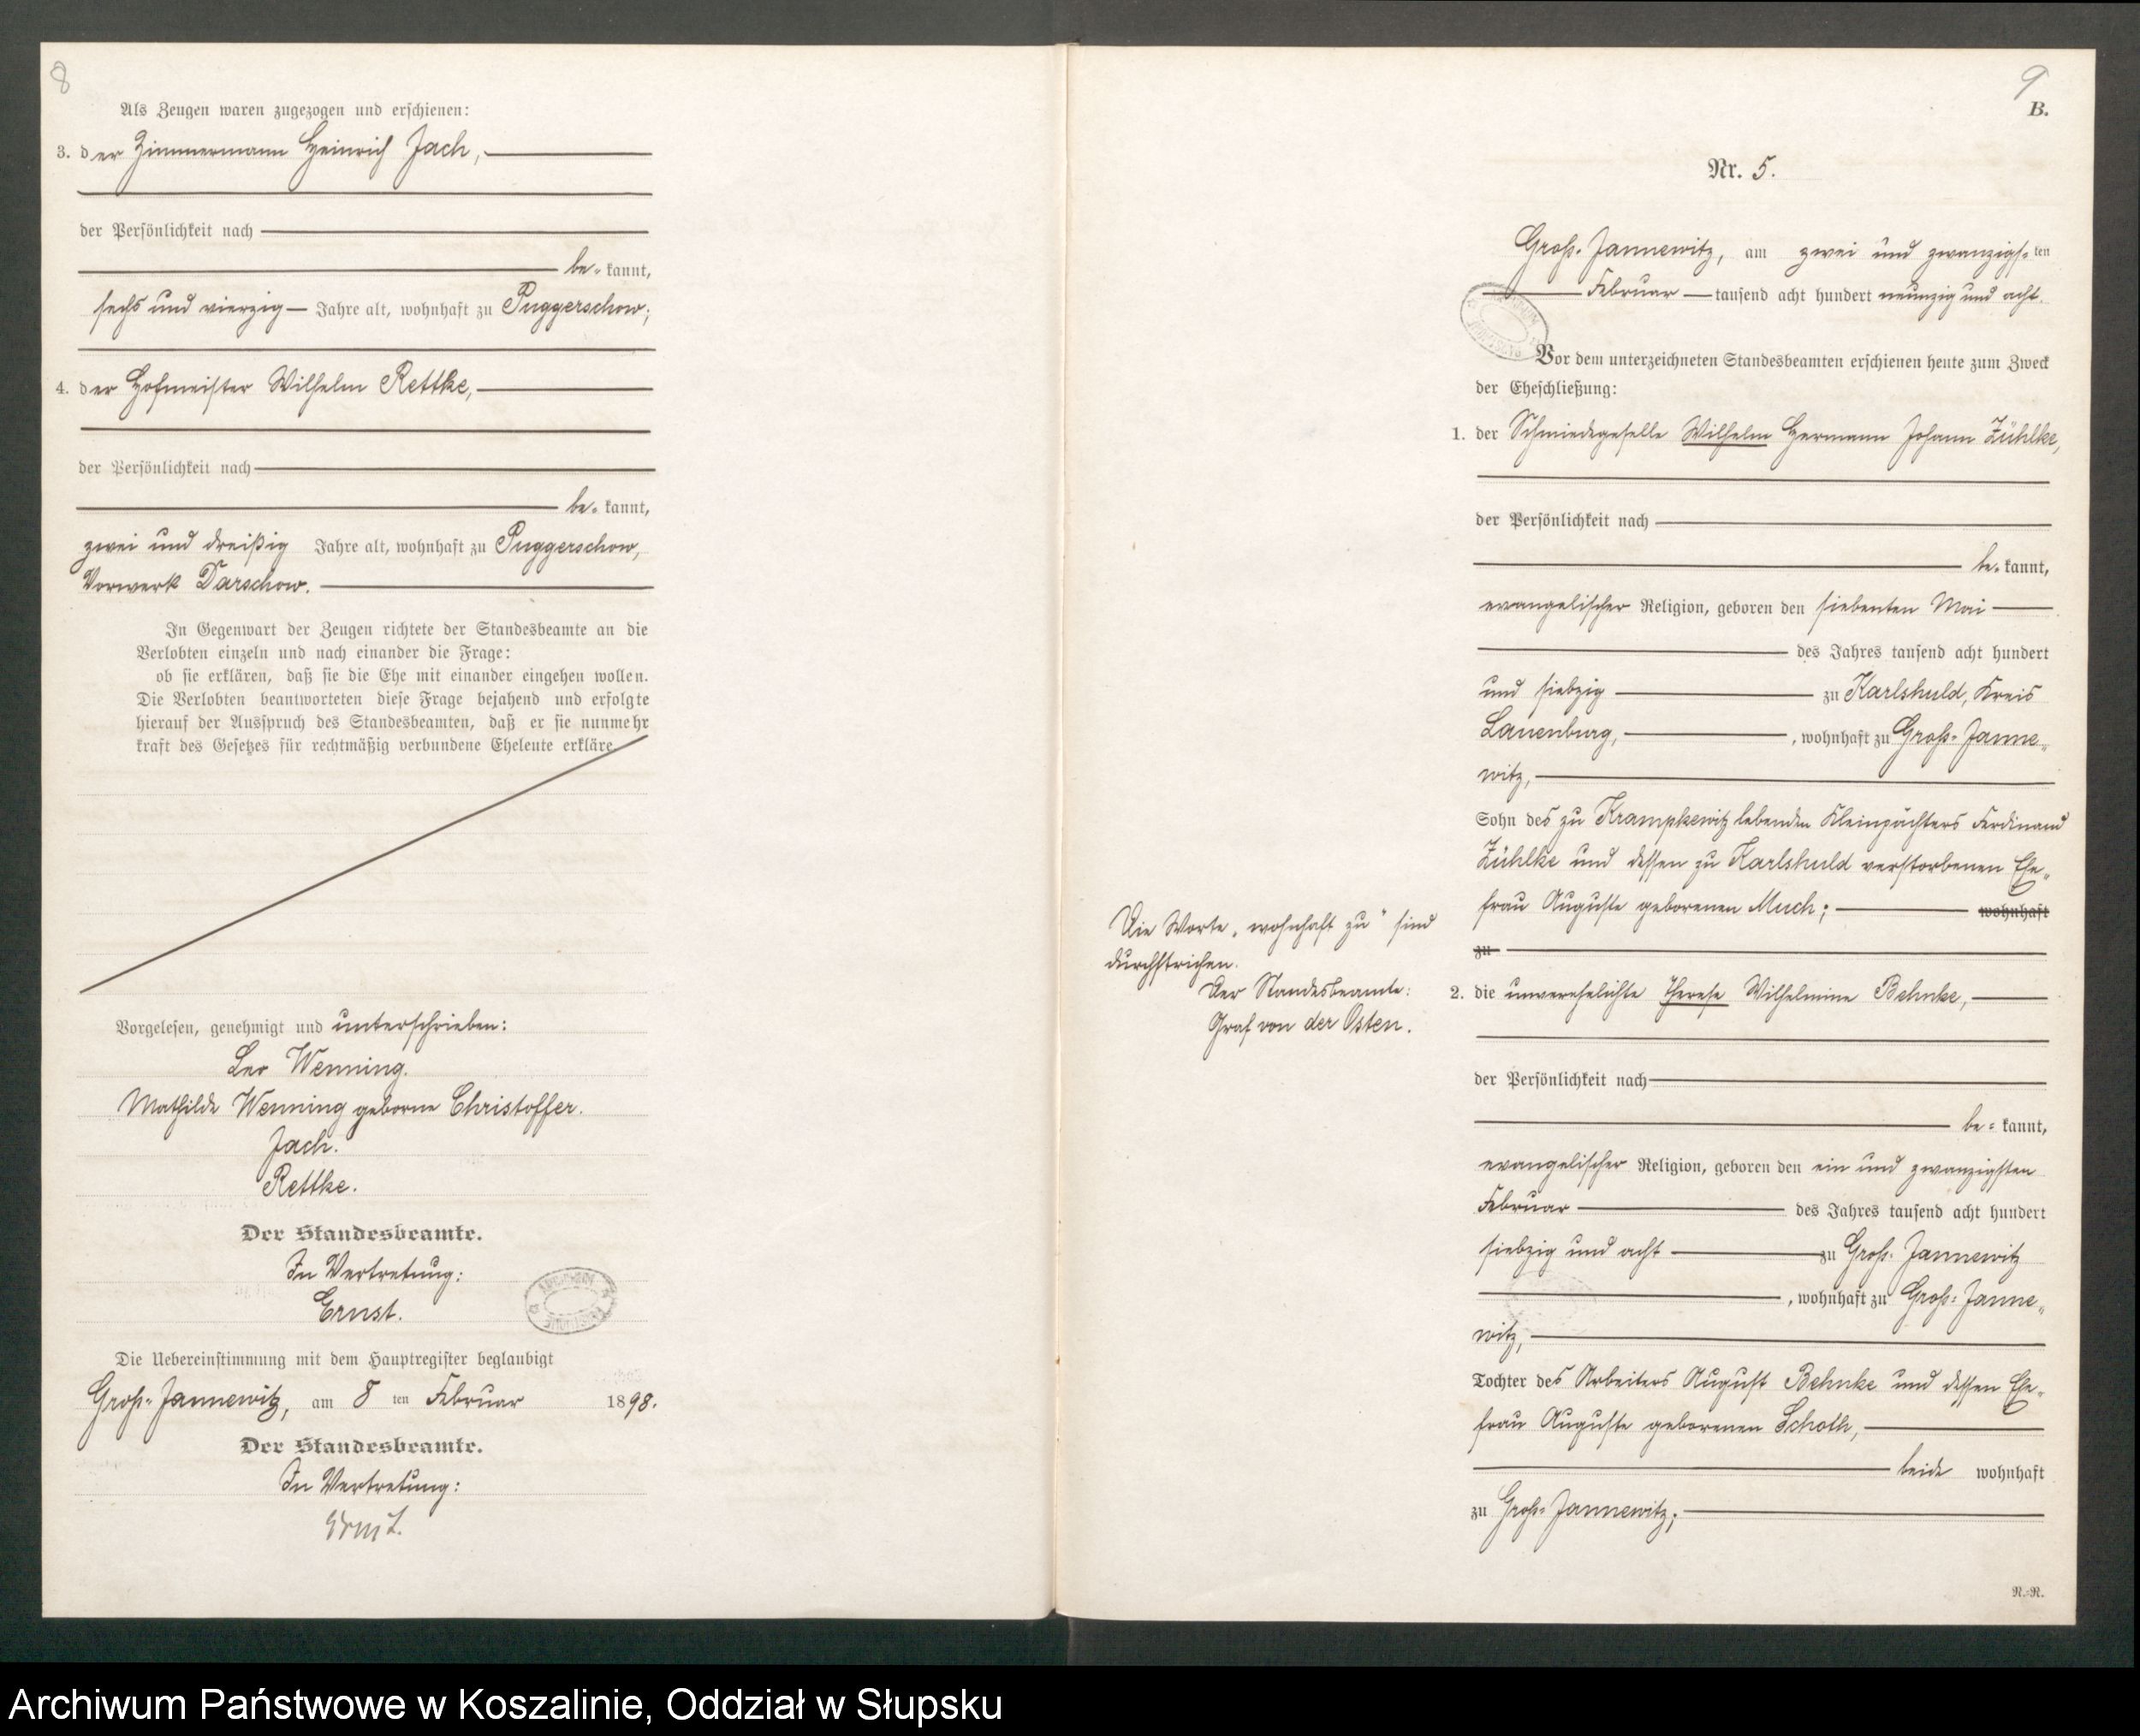 8
Als Zeugen waren zugezogen und erschienen:
3. der Zimmermann Heinrich Jach,
der Persönlichkeit nach
be- kannt,
sechs und vierzig Jahre alt, wohnhaft zu Puggerschow;
4. der Hofmeister Wilhelm Rettke,
der Persönlichkeit nach
be- kannt,
zwei und dreißig Jahre alt, wohnhaft zu Puggerschow,
Vorwerk Darschow.
In Gegenwart der Zeugen richtete der Standesbeamte an die
Verlobten einzeln und nach einander die Frage:
ob sie erklären, daß sie die Ehe mit einander eingehen wollen.
Die Verlobten beantworteten diese Frage bejahend und erfolgte
hierauf der Ausspruch des Standesbeamten, daß er sie nunmehr
kraft des Gesetzes für rechtmäßig verbundene Eheleute erkläre
Vorgelesen, genehmigt und unterschrieben:
Leo Wenning.
Mathilde Wenning geborne Christoffer.
Jach.
Rettke.
Der Standesbeamte.
In Vertretung:
Ernst.
Die Uebereinstimmung mit dem Hauptregister beglaubigt
Groß-Jannewitz, am 8 ten Februar 1898.
Der Standesbeamte.
In Vertretung:
Ernst.
9
B.
Nr. 5.
Groß-Jannewitz, am zwei und zwanzigs-ten
Februar tausend acht hundert neunzig und acht.
Vor dem unterzeichneten Standesbeamten erschienen heute zum Zweck
der Eheschließung:
1. der Schmiedegeselle Wilhelm Hermann Johann Zühlke,
der Persönlichkeit nach
be- kannt,
evangelischer Religion, geboren den siebenten Mai
des Jahres tausend acht hundert
und siebzig zu Karlshuld, Kreis
Lauenburg, , wohnhaft zu Groß-Janne-
witz,
Sohn des zu Krampkewitz lebenden Kleinpächters Ferdinand
Zühlke und dessen zu Karlshuld verstorbenen Ehe-
frau Auguste geborenen Much; wohnhaft
zu
Die Worte „wohnhaft zu" sind
durchstrichen.
Der Standesbeamte:
Graf von der Osten.
2. die unverehelichte Therese Wilhelmine Behnke,
der Persönlichkeit nach
be- kannt,
evangelischer Religion, geboren den ein und zwanzigsten
Februar des Jahres tausend acht hundert
siebzig und acht zu Groß-Jannewitz
, wohnhaft zu Groß-Janne-
witz,
Tochter des Arbeiters August Behnke und dessen Ehe-
frau Auguste geborenen Schoth,
beide wohnhaft
zu Groß-Jannewitz;
R.-R.
Archiwum Państwowe w Koszalinie, Oddział w Słupsku